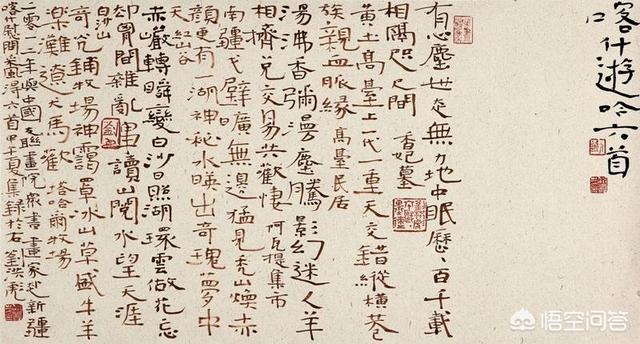 喀什遊吟六首
有心塵世無力地中眠歷百千載
相隔咫尺間 香妃墓
黃土高臺上一代一重天交錯縱橫巷
族親血脈緣 高臺民居
湯沸香彌漫塵騰影幻迷人羊
相擠兌交易共歡 阿瓦提集市
南疆戈壁曠無邊猛見禿山煥赤
顏更有一湖神秘水映出奇瑰夢中
天 紅山谷
赤巖轉瞬變白沙日照湖環雲做花忘
卻胃間雜亂讀山閱水望天涯
白沙山
奇鋪牧場神靄罩冰山草盛牛羊
樂天馬歡 塔哈爾牧場
二零一二年與中國文聯畫院眾書畫家赴新疆
喀什慰問得六首甲午夏集錄於石 劉洪彪
悟空问答